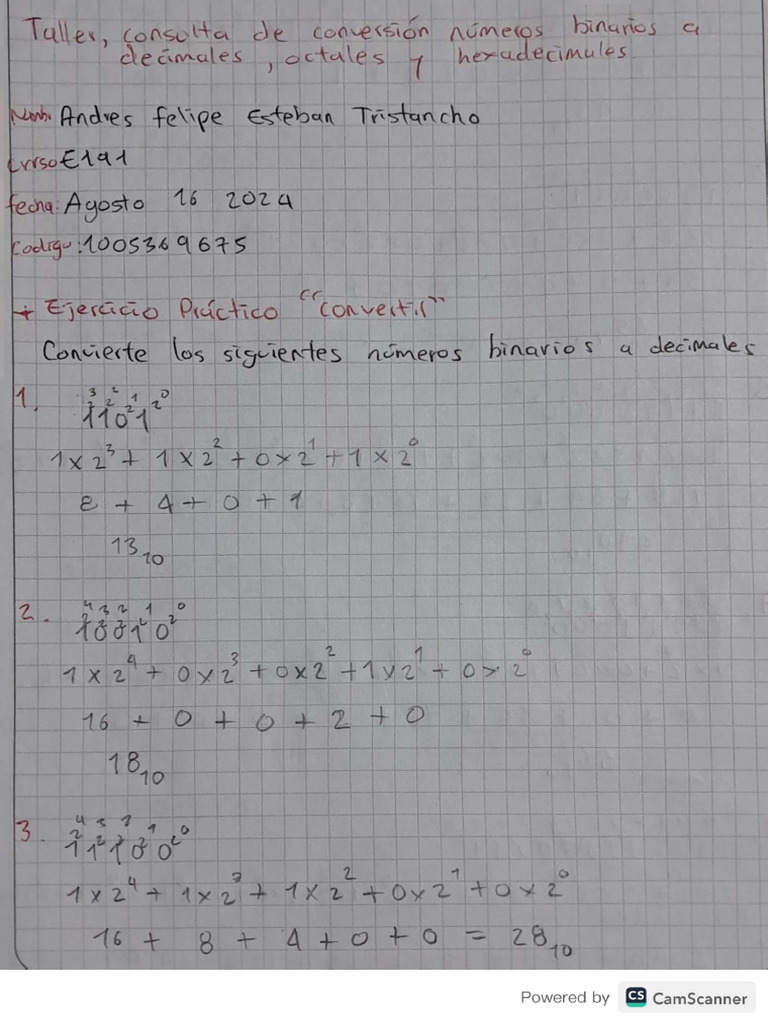 Taller, consulta de conversión números binarios a
decimales, octales y hexadecimales
Nomb. Andres Felipe Esteban Tristancho
Curso E191
fecha: Agosto 16 2024
codigo: 1005369675
+ Ejercicio Práctico "convertir"
Convierte los siguientes números binarios a decimales
1. 1 2³ 1 2² 0 2¹ 1 2⁰
1 x 2³ + 1 x 2² + 0 x 2¹ + 1 x 2⁰
8 + 4 + 0 + 1
13₁₀
2. 1 2⁴ 0 2³ 0 2² 1 2¹ 0 2⁰
1 x 2⁴ + 0 x 2³ + 0 x 2² + 1 x 2¹ + 0 x 2⁰
16 + 0 + 0 + 2 + 0
18₁₀
3. 1 2⁴ 1 2³ 1 2² 0 2¹ 0 2⁰
1 x 2⁴ + 1 x 2³ + 1 x 2² + 0 x 2¹ + 0 x 2⁰
16 + 8 + 4 + 0 + 0 = 28₁₀
Powered by CS CamScanner